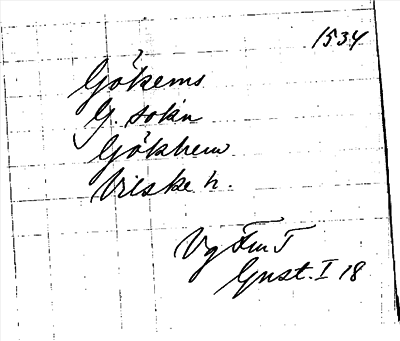 1534
Gökems
G. sokn
Gökhem
Vilske h.
Vg Fm T
Gust. I 18